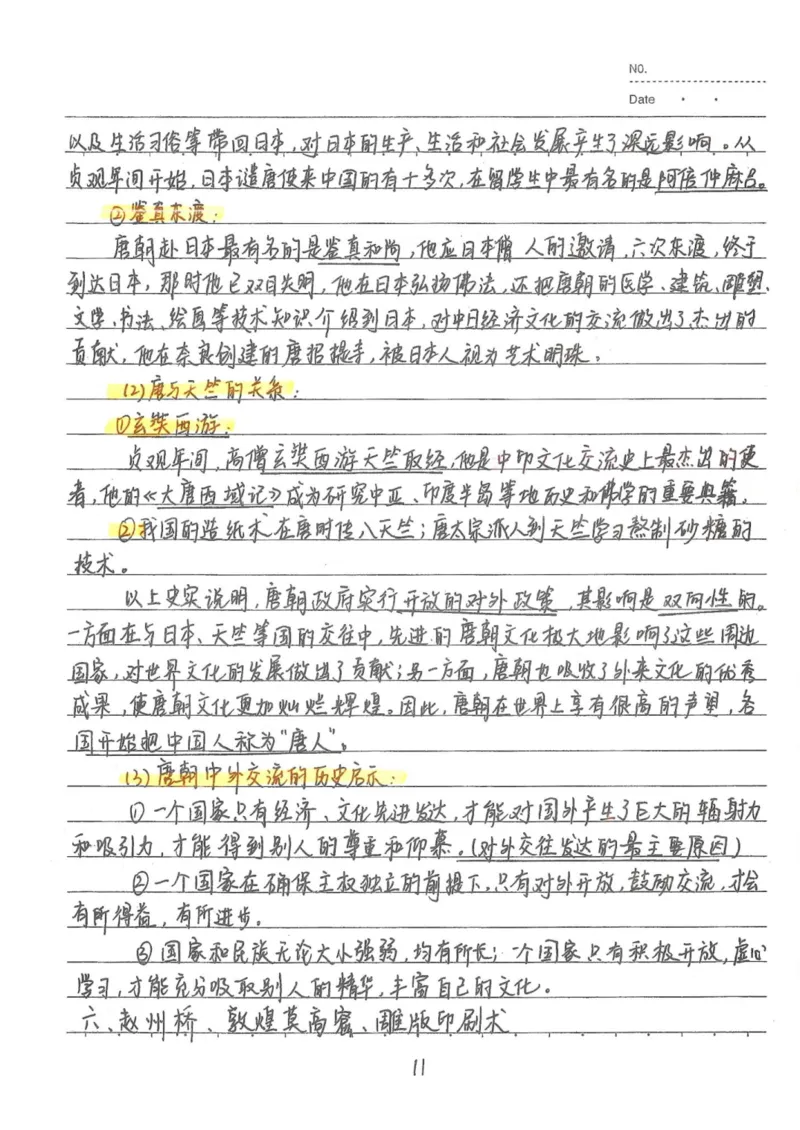 NO.
Date
以及生活习俗等带回日本,对日本的生产、生活和社会发展产生了深远影响。从
贞观年间开始,日本遣唐使来中国的有十多次,在留学生中最有名的是阿倍仲麻吕。
②鉴真东渡:
唐朝赴日本最有名的是鉴真和尚,他应日本僧人的邀请,六次东渡,终于
到达日本,那时他已双目失明,他在日本弘扬佛法,还把唐朝的医学、建筑、雕塑、
文学、书法、绘画等技术知识介绍到日本,对中日经济文化的交流做出了杰出的
贡献,他在奈良创建的唐招提寺,被日本人视为艺术明珠。
(2)唐与天竺的关系:
①玄奘西游:
贞观年间,高僧玄奘西游天竺取经,他是中印文化交流史上最杰出的使
者,他的《大唐西域记》成为研究中亚、印度半岛等地历史和佛学的重要典籍。
②我国的造纸术在唐时传入天竺;唐太宗派人到天竺学习熬制砂糖的
技术。
以上史实说明,唐朝政府实行开放的对外政策,其影响是双向性的。
一方面在与日本、天竺等国的交往中,先进的唐朝文化极大地影响了这些周边
国家,对世界文化的发展做出了贡献;另一方面,唐朝也吸收了外来文化的优秀
成果,使唐朝文化更加灿烂辉煌。因此,唐朝在世界上享有很高的声望,各
国开始把中国人称为“唐人”。
(3)唐朝中外交流的历史启示:
①一个国家只有经济、文化先进发达,才能对国外产生了巨大的辐射力
和吸引力,才能得到别人的尊重和仰慕。(对外交往发达的最主要原因)
②一个国家在确保主权独立的前提下,只有对外开放,鼓励交流,才会
有所得益,有所进步。
③国家和民族无论大小强弱,均有所长;一个国家只有积极开放,虚心
学习,才能充分吸取别人的精华,丰富自己的文化。
六、赵州桥、敦煌莫高窟、雕版印刷术
11